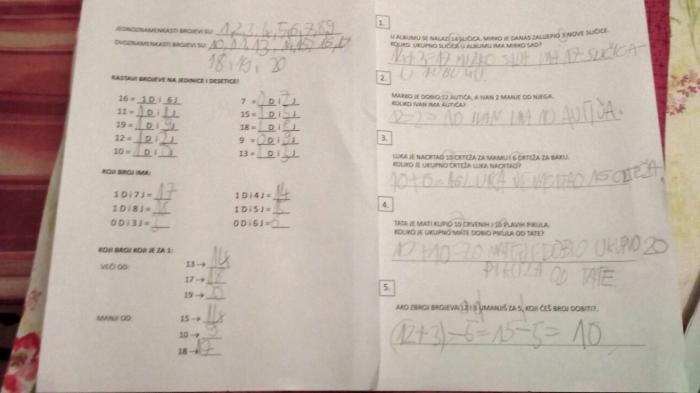 JEDNOZNAMENKASTI BROJEVI SU: 1,2,3,4,5,6,7,8,9
DVOZNAMENKASTI BROJEVI SU: 10, 11, 13,
18, 19, 20
RASTAVI BROJEVE NA JEDINICE I DESETICE!
16 = 1 D i 6 J
11 = 1 D i 1 J
19 = 1 D i 9 J
12 = 1 D i 2 J
10 = D i J
7 = D i 7 J
15 = D i 5 J
18 = D i 8 J
9 = D i J
13 = D i 3 J
KOJI BROJ IMA:
1 D i 7 J = 17
1 D i 8 J = 18
0 D i 3 J =
1 D i 4 J = 14
1 D i 5 J =
0 D i 6 J =
KOJI BROJ KOJI JE ZA 1:
VEĆI OD:
13 → 14
17 → 18
19 →
MANJI OD:
15 → 14
10 → 9
18 → 17
1.
U ALBUMU SE NALAZI 14 SLIČICA. MIRKO JE DANAS ZALIJEPIO 3 NOVE SLIČICE.
KOLIKO UKUPNO SLIČICA U ALBUMU IMA MIRKO SAD?
14+3=17 MIRKO SADA IMA 17 SLIČICA
U ALBUMU.
2.
MARKO JE DOBIO 12 AUTIĆA, A IVAN 2 MANJE OD NJEGA.
KOLIKO IVAN IMA AUTIĆA?
12-2=10 IVAN IMA 10 AUTIĆA.
3.
LUKA JE NACRTAO 10 CRTEŽA ZA MAMU I 6 CRTEŽA ZA BAKU.
KOLIKO JE UKUPNO CRTEŽA LUKA NACRTAO?
LUKA JE NACRTAO CRTEŽA.
4.
TATA JE MATI KUPIO 10 CRVENIH I 10 PLAVIH PIKULA.
KOLIKO JE UKUPNO MATE DOBIO PIKULA OD TATE?
+10=20 MATE JE DOBIO UKUPNO 20
PIKULA OD TATE.
5.
AKO ZBROJ BROJEVA 12 I 3 UMANJIŠ ZA 5, KOJI ĆEŠ BROJ DOBITI?
(12+3)-5=15-5=10